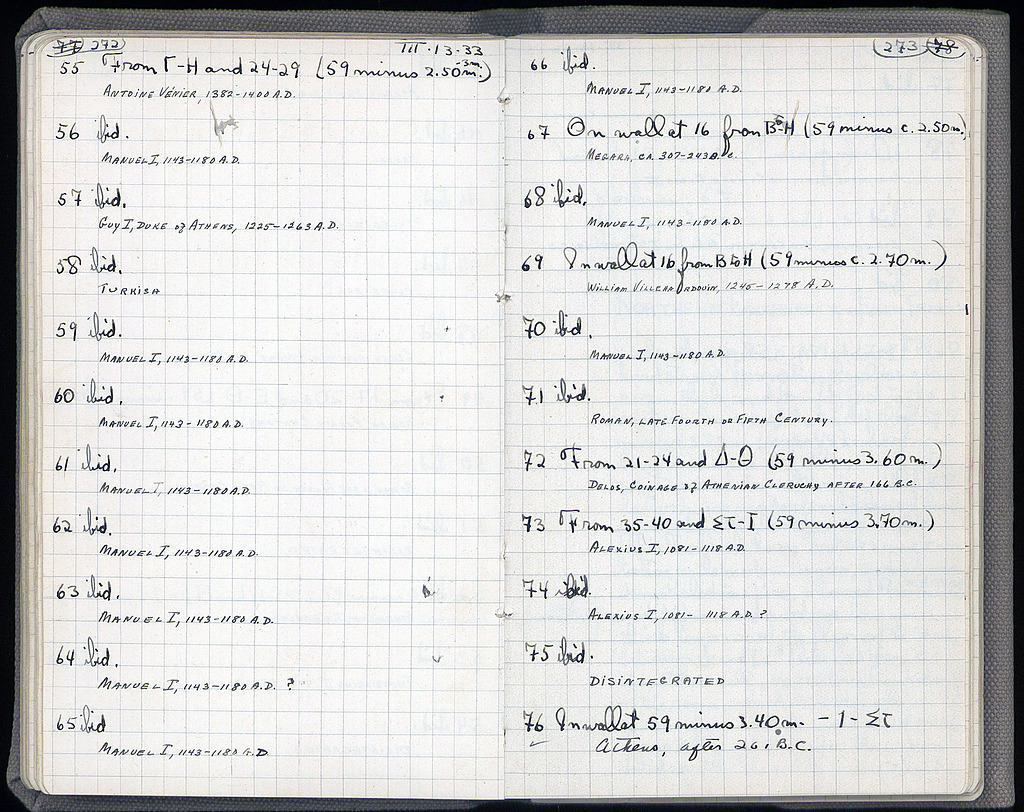 77 272
III·13·33
55 From Γ-H and 24-29 (59 minus 2.50 -3m.)
ANTOINE VÉNIER, 1382-1400 A.D.
56 ibid.
MANUEL I, 1143-1180 A.D.
57 ibid.
GUY I, DUKE of ATHENS, 1225-1263 A.D.
58 ibid.
TURKISH
59 ibid.
MANUEL I, 1143-1180 A.D.
60 ibid.
MANUEL I, 1143-1180 A.D.
61 ibid.
MANUEL I, 1143-1180 A.D.
62 ibid.
MANUEL I, 1143-1180 A.D.
63 ibid.
MANUEL I, 1143-1180 A.D.
64 ibid.
MANUEL I, 1143-1180 A.D. ?
65 ibid
MANUEL I, 1143-1180 A.D
273 78
66 ibid.
MANUEL I, 1143-1180 A.D.
67 On wall at 16 from B-H (59 minus c. 2.50m.)
MEGARA, CA. 307-243 B.C.
68 ibid.
MANUEL I, 1143-1180 A.D.
69 In wall at 16 from B to H (59 minus c. 2.70 m.)
WILLIAM VILLEHARDOUIN, 1245-1278 A.D.
70 ibid.
MANUEL I, 1143-1180 A.D.
71 ibid.
ROMAN, LATE FOURTH OR FIFTH CENTURY.
72 From 21-24 and Δ-Θ (59 minus 3.60 m.)
DELOS, COINAGE of ATHENIAN CLERUCHY AFTER 166 B.C.
73 From 35-40 and Στ-I (59 minus 3.70 m.)
ALEXIUS I, 1081-1118 A.D.
74 ibid.
ALEXIUS I, 1081-1118 A.D. ?
75 ibid.
DISINTEGRATED
76 In wall at 59 minus 3.40 m. -1- Στ
Athens, after 261 B.C.